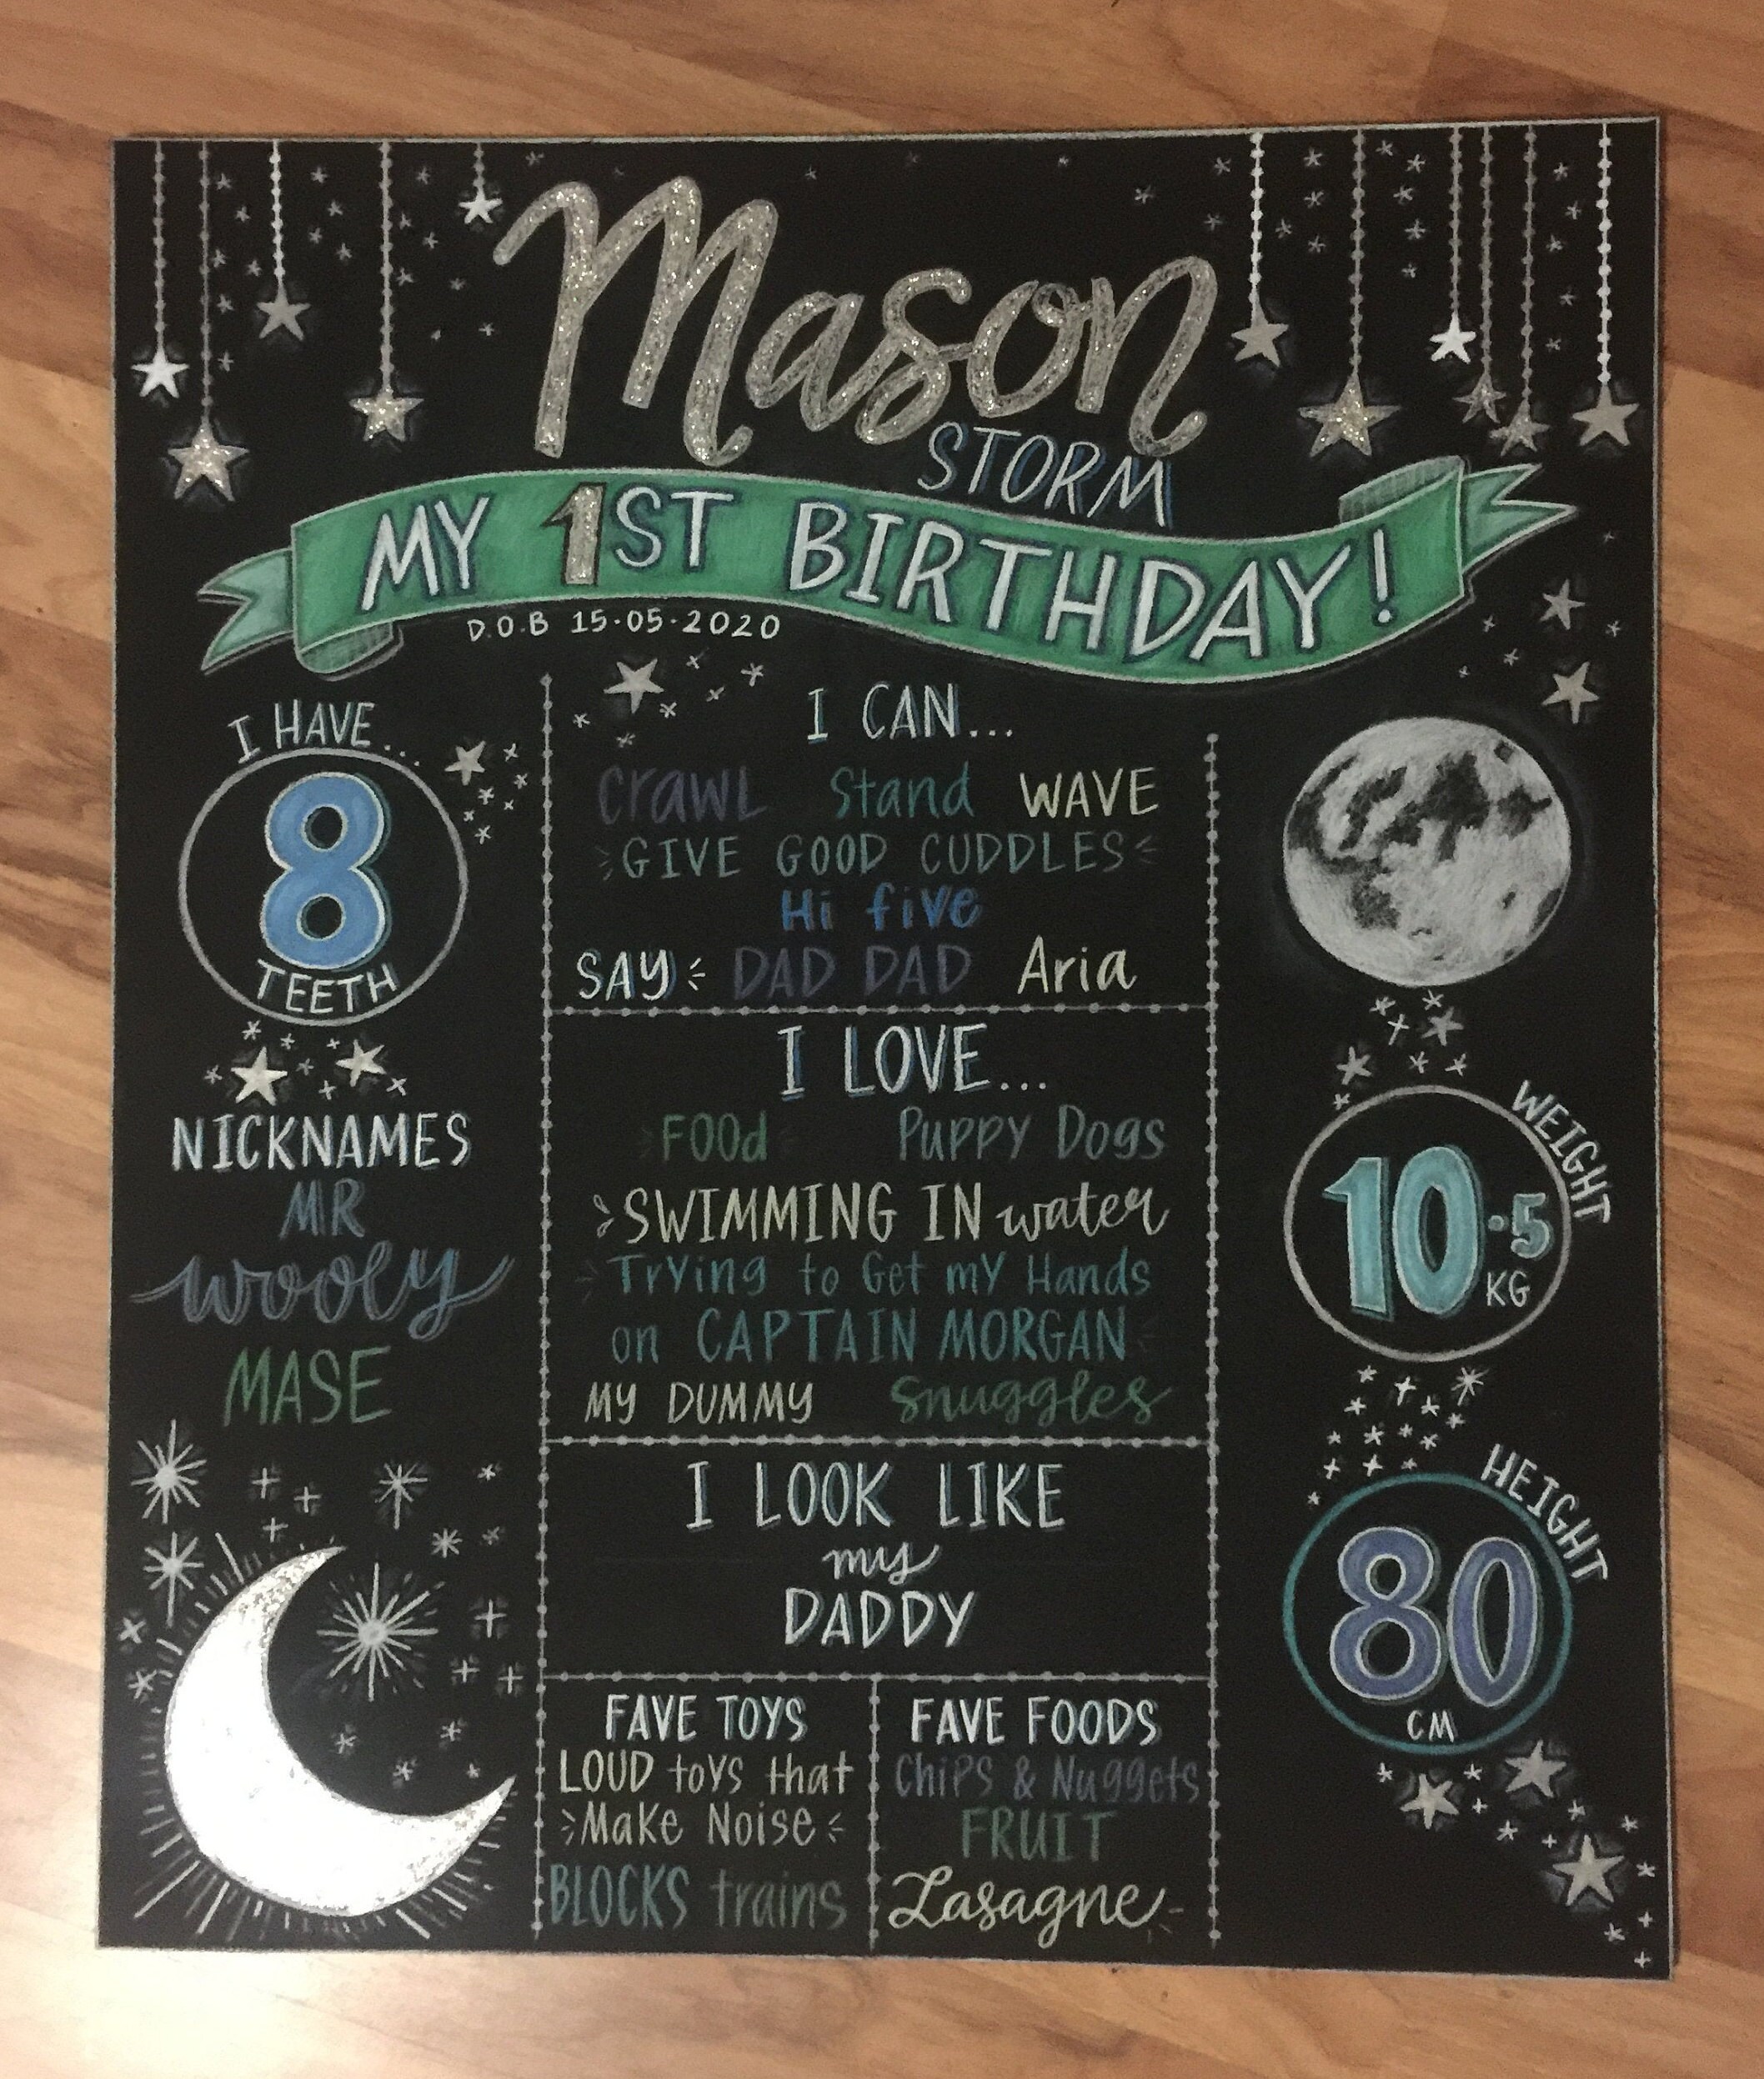 Mason
STORM
MY 1ST BIRTHDAY!
D.O.B 15·05·2020
I HAVE...
8
TEETH
NICKNAMES
MR
wooly
MASE
I CAN...
CrawL Stand WAVE
GIVE GOOD CUDDLES
Hi five
SAY DAD DAD Aria
I LOVE...
FOOd Puppy Dogs
SWIMMING IN water
Trying to Get my Hands
on CAPTAIN MORGAN
MY DUMMY Snuggles
I LOOK LIKE
my
DADDY
FAVE TOYS
LOUD toys that
Make Noise
BLOCKS trains
FAVE FOODS
Chips & Nuggets
FRUIT
Lasagne
WEIGHT
10.5
KG
HEIGHT
80
CM